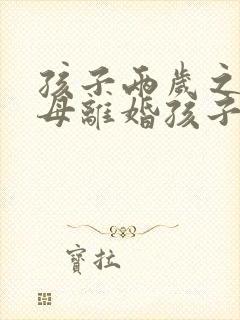 孩子兩歲之
母離婚孩子
寶拉